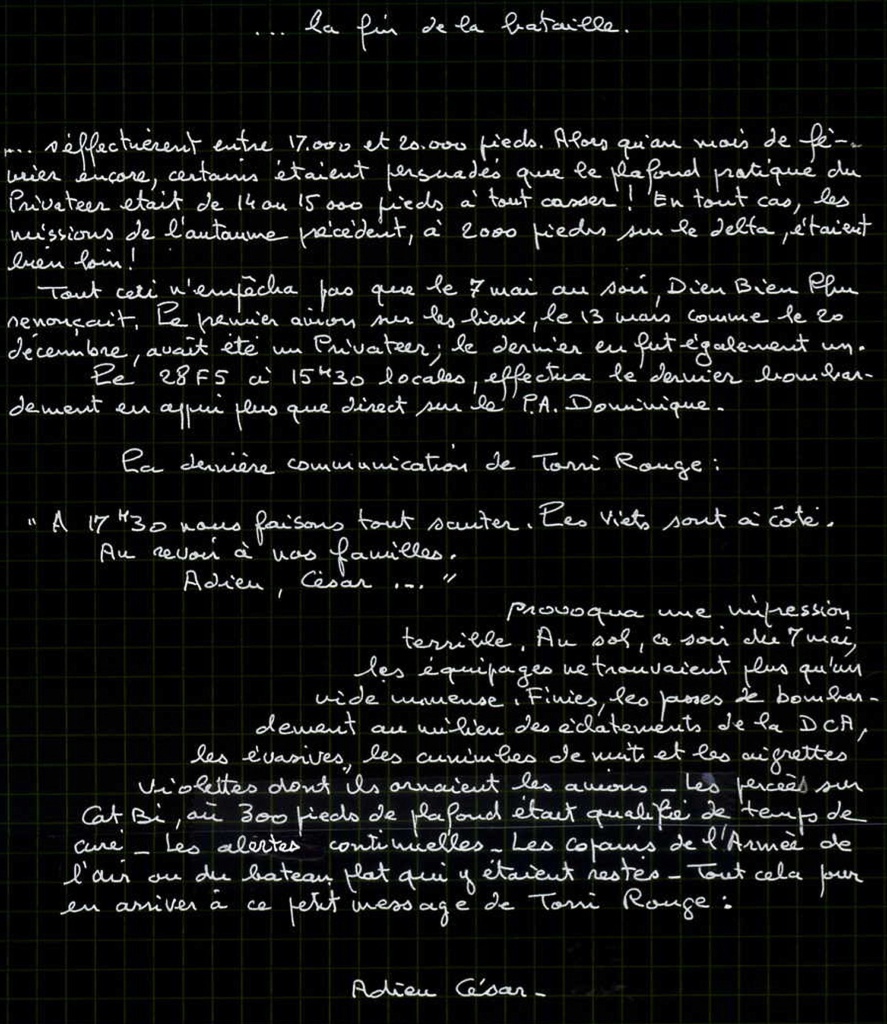 ... la fin de la bataille.
... s'effectuèrent entre 17.000 et 20.000 pieds. Alors qu'au mois de fé-
vrier encore, certains étaient persuadés que le plafond pratique du
Privateer était de 14 ou 15 000 pieds à tout casser ! En tout cas, les
missions de l'automne précédent, à 2000 pieds sur le delta, étaient
bien loin !
Tout ceci n'empêcha pas que le 7 mai au soir, Dien Bien Phu
renonçait. Le premier avion sur les lieux, le 13 mars comme le 20
décembre, avait été un Privateer ; le dernier en fut également un.
Le 28F5 à 15H30 locales, effectua le dernier bombar-
dement en appui plus que direct sur le P.A. Dominique.
La dernière communication de Torri Rouge :
" A 17H30 nous faisons tout sauter. Les Viets sont à côté.
Au revoir à nos familles.
Adieu, César ... "
provoqua une impression
terrible. Au sol, ce soir du 7 mai,
les équipages ne trouvaient plus qu'un
vide immense. Finies, les passes de bombar-
dement au milieu des éclatements de la DCA,
les évasives, les cunimbes de nuit et les aigrettes
violettes dont ils ornaient les avions - Les percées sur
Cat Bi, où 300 pieds de plafond était qualifié de temps de
curé - Les alertes continuelles - Les copains de l'Armée de
l'air ou du bateau plat qui y étaient restés - Tout cela pour
en arriver à ce petit message de Torri Rouge :
Adieu César -